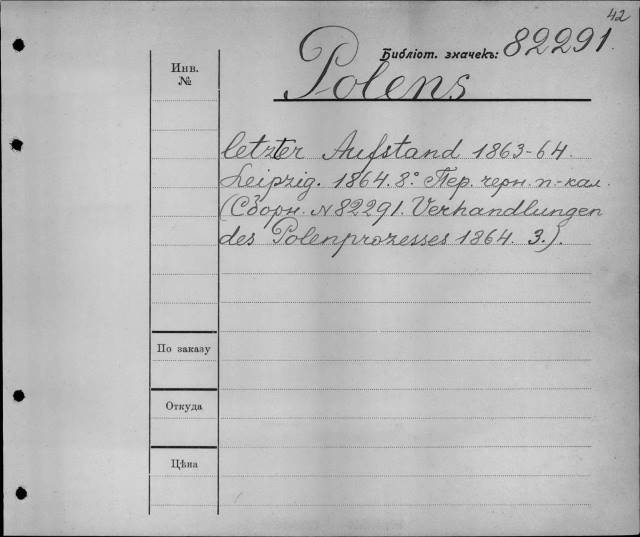 42
Библіот. значекъ: 82291.
Инв.
№
Polens
letzter Aufstand 1863-64.
Leipzig. 1864. 8°. Пер. черн. п-кал.
(Сборн. № 82291. Verhandlungen
des Polenprozesses 1864. 3.).
По заказу
Откуда
Цѣна